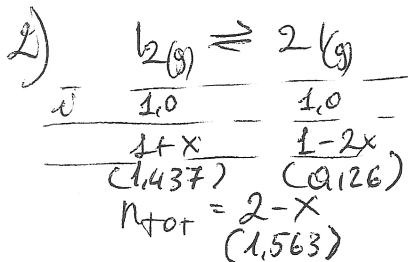 2) I2(g) ⇌ 2 I(g)
i 1,0 1,0
1+x 1-2x
(1,437) (0,126)
ntot = 2-x
(1,563)